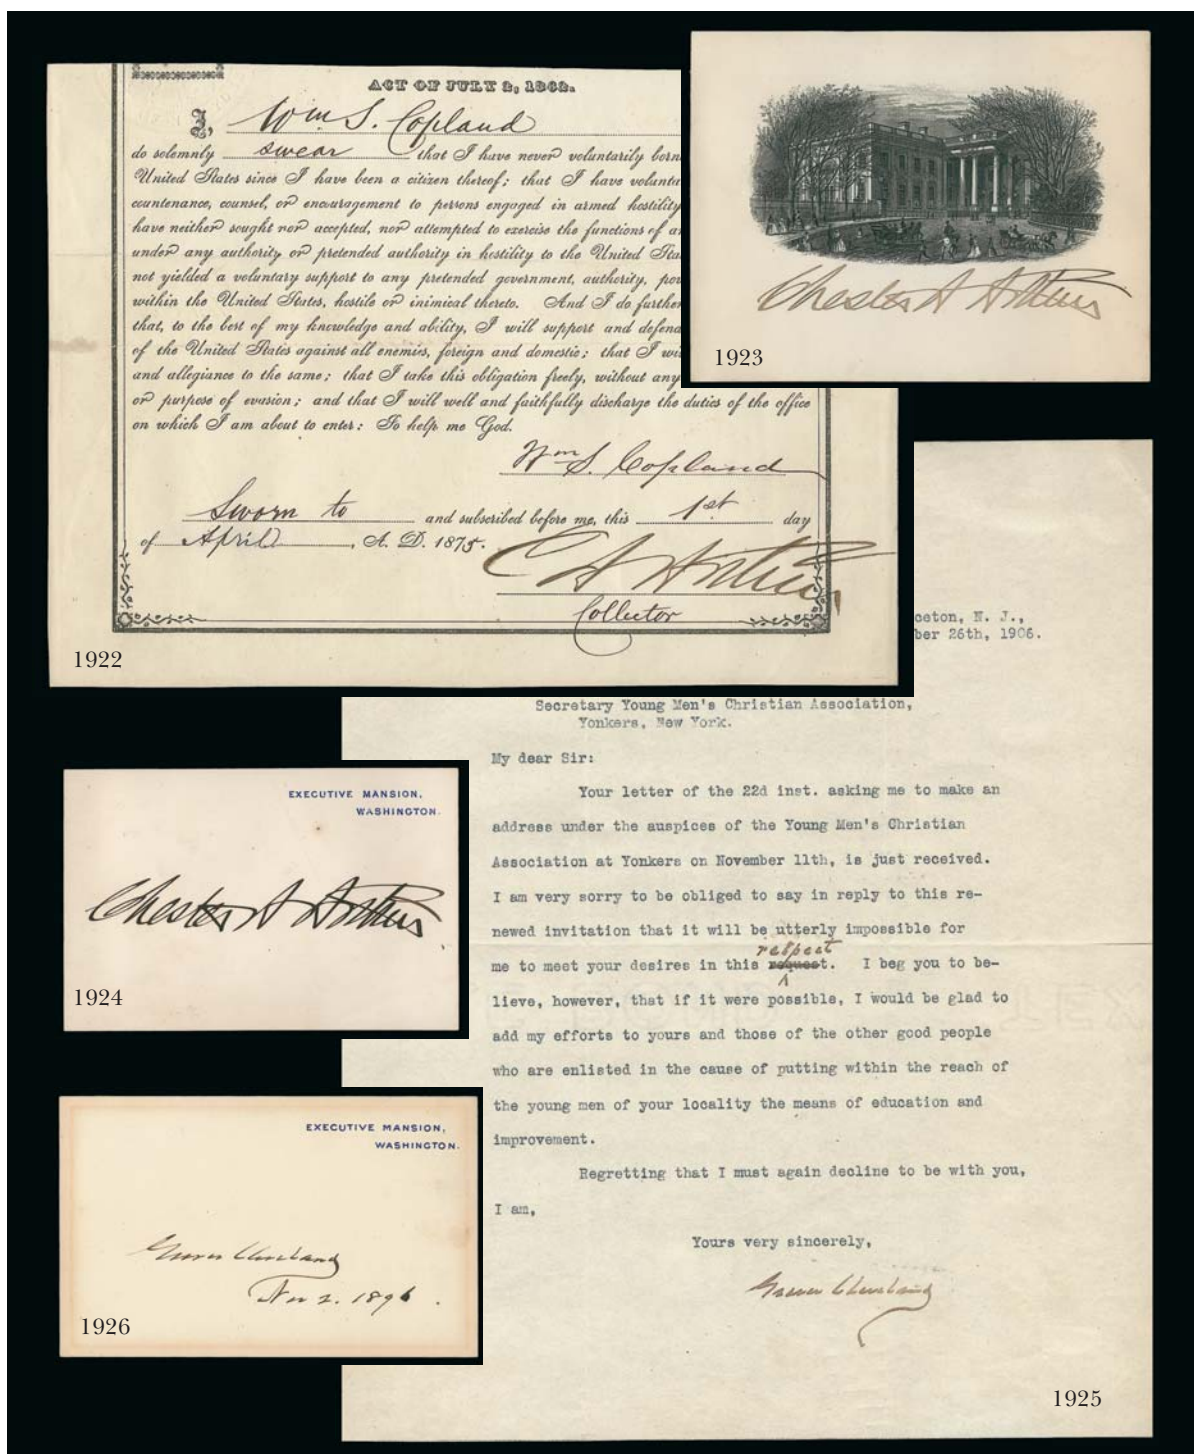 ACT OF JULY 2, 1862.
I, Wm S. Copland
do solemnly swear that I have never voluntarily born
United States since I have been a citizen thereof; that I have volunta
countenance, counsel, or encouragement to persons engaged in armed hostility
have neither sought nor accepted, nor attempted to exercise the functions of a
under any authority or pretended authority in hostility to the United Sta
not yielded a voluntary support to any pretended government, authority, po
within the United States, hostile or inimical thereto. And I do further
that, to the best of my knowledge and ability, I will support and defend
of the United States against all enemies, foreign and domestic; that I wi
and allegiance to the same; that I take this obligation freely, without any
or purpose of evasion; and that I will well and faithfully discharge the duties of the office
on which I am about to enter: So help me God.
Wm S. Copland
Sworn to and subscribed before me, this 1st day
of April, A. D. 1875.
C A Arthur
Collector
1922
Chester A Arthur
1923
EXECUTIVE MANSION,
WASHINGTON.
Chester A Arthur
1924
ceton, N. J.,
ber 26th, 1906.
Secretary Young Men's Christian Association,
Yonkers, New York.
My dear Sir:
Your letter of the 22d inst. asking me to make an
address under the auspices of the Young Men's Christian
Association at Yonkers on November 11th, is just received.
I am very sorry to be obliged to say in reply to this re-
newed invitation that it will be utterly impossible for
respect
me to meet your desires in this request. I beg you to be-
lieve, however, that if it were possible, I would be glad to
add my efforts to yours and those of the other good people
who are enlisted in the cause of putting within the reach of
the young men of your locality the means of education and
improvement.
Regretting that I must again decline to be with you,
I am,
Yours very sincerely,
Grover Cleveland
1925
EXECUTIVE MANSION,
WASHINGTON.
Grover Cleveland
Nov 2. 1896.
1926